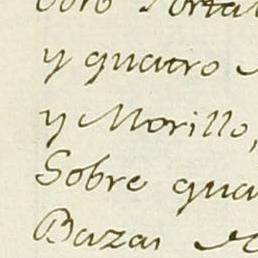 y quatro
y Morillo,
Sobre qua
Bazas